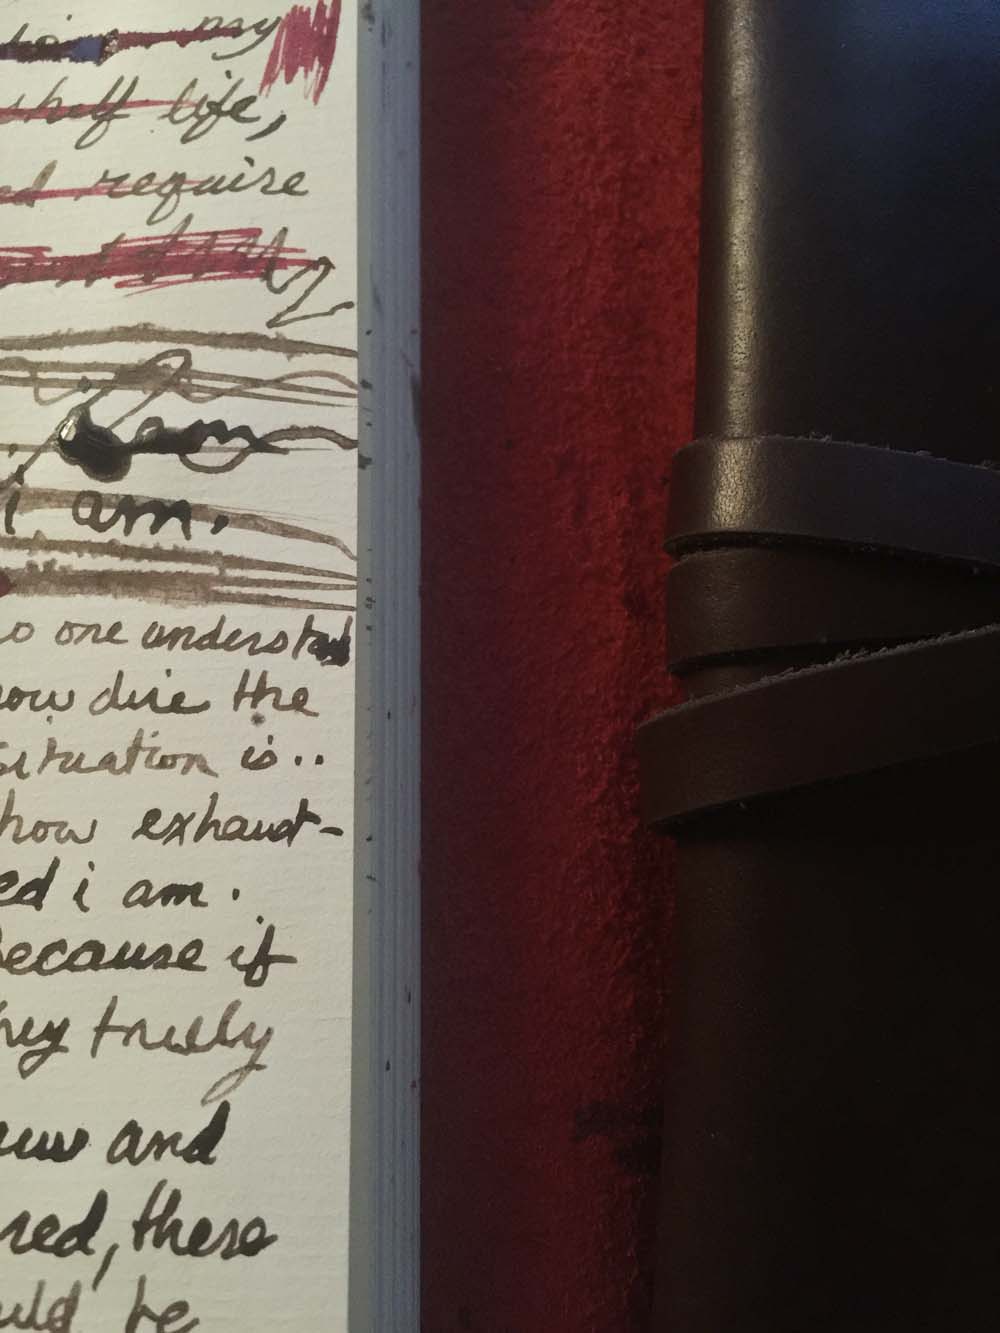 my
shelf life,
ed require
am
i am.
o one understa
ow dire the
situation is..
how exhaust-
ed i am.
Because if
hey truly
ew and
red, there
uld be